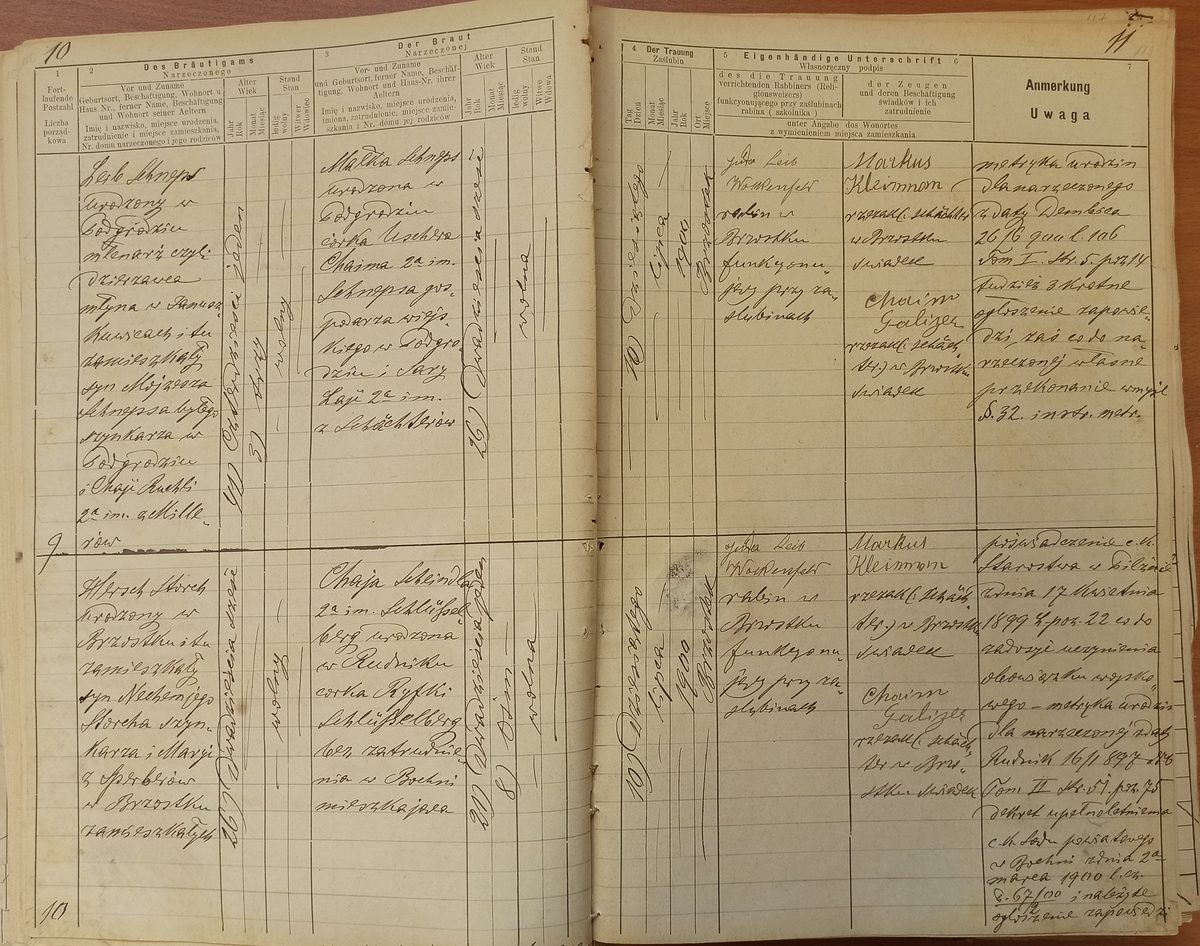 10
Des Bräutigams
Narzeczonego
Der Braut
Narzeczonej
1
Fort-
laufende
Postzahl
Liczba
porząd-
kowa
2
Vor und Zuname
Geburtsort, Beschäftigung, Wohnort u.
Haus Nr., ferner Name, Beschäftigung
und Wohnort seiner Aeltern
Imię i nazwisko, miejsce urodzenia,
zatrudnienie i miejsce zamieszkania,
Nr. domu narzeczonego i jego rodziców
Alter
Wiek
Jahr
Rok
Monat
Miesiąc
Stand
Stan
ledig
wolny
Witwer
Wdowiec
3
Vor- und Zuname
und Geburtsort, ferner Name, Beschäf-
tigung, Wohnort und Haus-Nr. ihrer
Aeltern
Imię i nazwisko, miejsce urodzenia,
imiona, zatrudnienie, miejsce zamie-
szkania i Nr. domu jej rodziców
Alter
Wiek
Jahr
Rok
Monat
Miesiąc
Stand
Stan
ledig
wolny
Witwe
Wdowa
Leib Schneps
urodzony w
Podgrodziu
młynarz czyli
dzierżawca
młyna w Janusz
kowicach i tu
zamieszkały
syn Mojżesza
Schnepsa byłego
szynkarza w
Podgrodziu
i Chaji Ruchli
2a im. z Mille-
rów
41) Czterdzieści jeden
3) trzy
wolny
Malka Schneps
urodzona w
Podgrodziu
córka Uschera
Chaima 2a im.
Schnepsa gos-
podarza wiejs-
kiego w Podgro-
dziu i Sary
Laji 2a im.
z Schächterów
26) Dwadzieścia sześć
wolna
9
Hersch Storch
urodzony w
Brzostku i tu
zamieszkały
syn Nechemjego
Storcha szyn-
karza i Maryi
z Sperberów
w Brzostku
zamieszkałych
26) Dwadzieścia sześć
wolny
Chaja Scheindla
2a im. Schlüssel-
berg urodzona
w Rudniku
córka Ryfki
Schlüsselberg
bez zatrudnie
nia w Bochni
mieszkająca
21) Dwadzieścia jeden
8) Ośm
wolna
10
11
4
Der Trauung
Zaślubin
Tag
Dzień
Monat
Miesiąc
Jahr
Rok
Ort
Miejsce
5
Eigenhändige Unterschrift
6
Własnoręczny podpis
des die Trauung
verrichtenden Rabbiners (Reli-
gionsweisers)
funkcyonującego przy zaślubinach
rabina ( szkolnika )
der Zeugen
und deren Beschäftigung
świadków i ich
zatrudnienie
unter Angabe des Wonortes
z wymienieniem miejsca zamieszkania
7
Anmerkung
Uwaga
10) Dziesiątego
lipca
1900
Brzostek
Juda Leib
rabin w
Brzostku
funkcyonu-
jący przy za-
ślubinach
Markus
Kleinman
rzezak (: Schächter
w Brzostku
świadek
Chaim
Galizer
rzezak (: Schäch
ter:) w Brzostku
świadek
metryka urodzin
dla narzeczonego
z daty Dembica
26/6 900 l. 106
Tom I. Str. 5. poz 14
tudzież 3 kretne
ogłoszenie zapowie-
dzi, zaś co do na-
rzeczonej własne
przekonanie w myśl
§. 32. instr. metr.
10) Dziesiątego
lipca
1900
Brzostek
Juda Leib
rabin w
Brzostku
funkcyonu-
jący przy za-
ślubinach
Markus
Kleinman
rzezak (: Schäch
ter:) w Brzostku
świadek
Chaim
Galizer
rzezak (: Schäch-
ter w Brzo-
stku świadek
poświadczenie c.k.
Starostwa w Pilznie
z dnia 17 Kwietnia
1899 L. poz. 22 co do
zadosyć uczynienia
obowiązku wojsko-
wego – metryka urodzin
dla narzeczonej z daty
Rudnik 16/1 897
Tom II Str. 51. poz. 75
dekret upełnoletnienia
c.k. Sądu powiatowego
w Bochni z dnia 2a
marca 1900 l. cz.
67/00 i należyte
ogłoszenie zapowiedzi